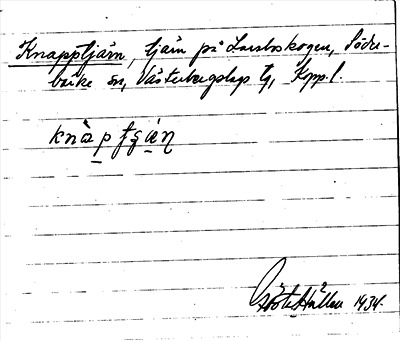 Knapptjärn, tjärn på Larsboskogen, Söder-
barke sn, Västerbergslags tg, Kopp. l.
knàpțșä̀ṇ
Gösta Hållen 1934.